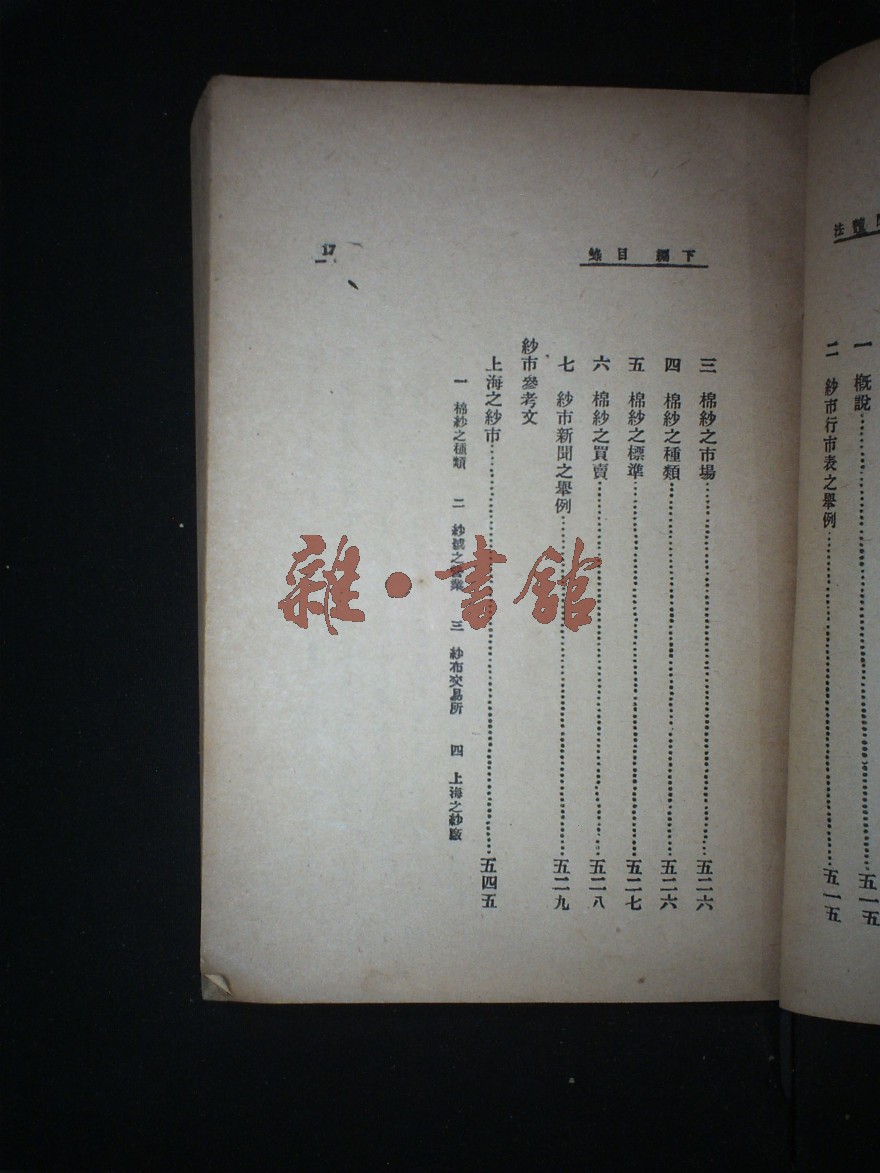 法
一 概説……五一五
二 紗市行市表之舉例……五一五
下編 目錄
17
三 棉紗之市場……五二六
四 棉紗之種類……五二六
五 棉紗之標準……五二七
六 棉紗之買賣……五二八
七 紗市新聞之舉例……五二九
紗市參考文
上海之紗市……五四五
一 棉紗之種類 二 紗號之營業 三 紗布交易所 四 上海之紗廠
雜·書館